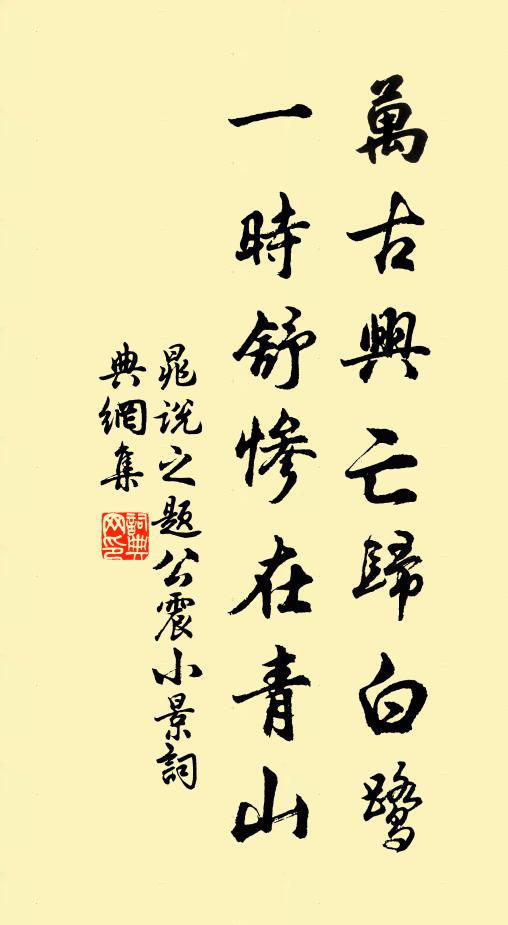 萬古興亡歸白鷺
一時舒慘在青山
晁說之題公震小景詞
典網集
詞典
网印